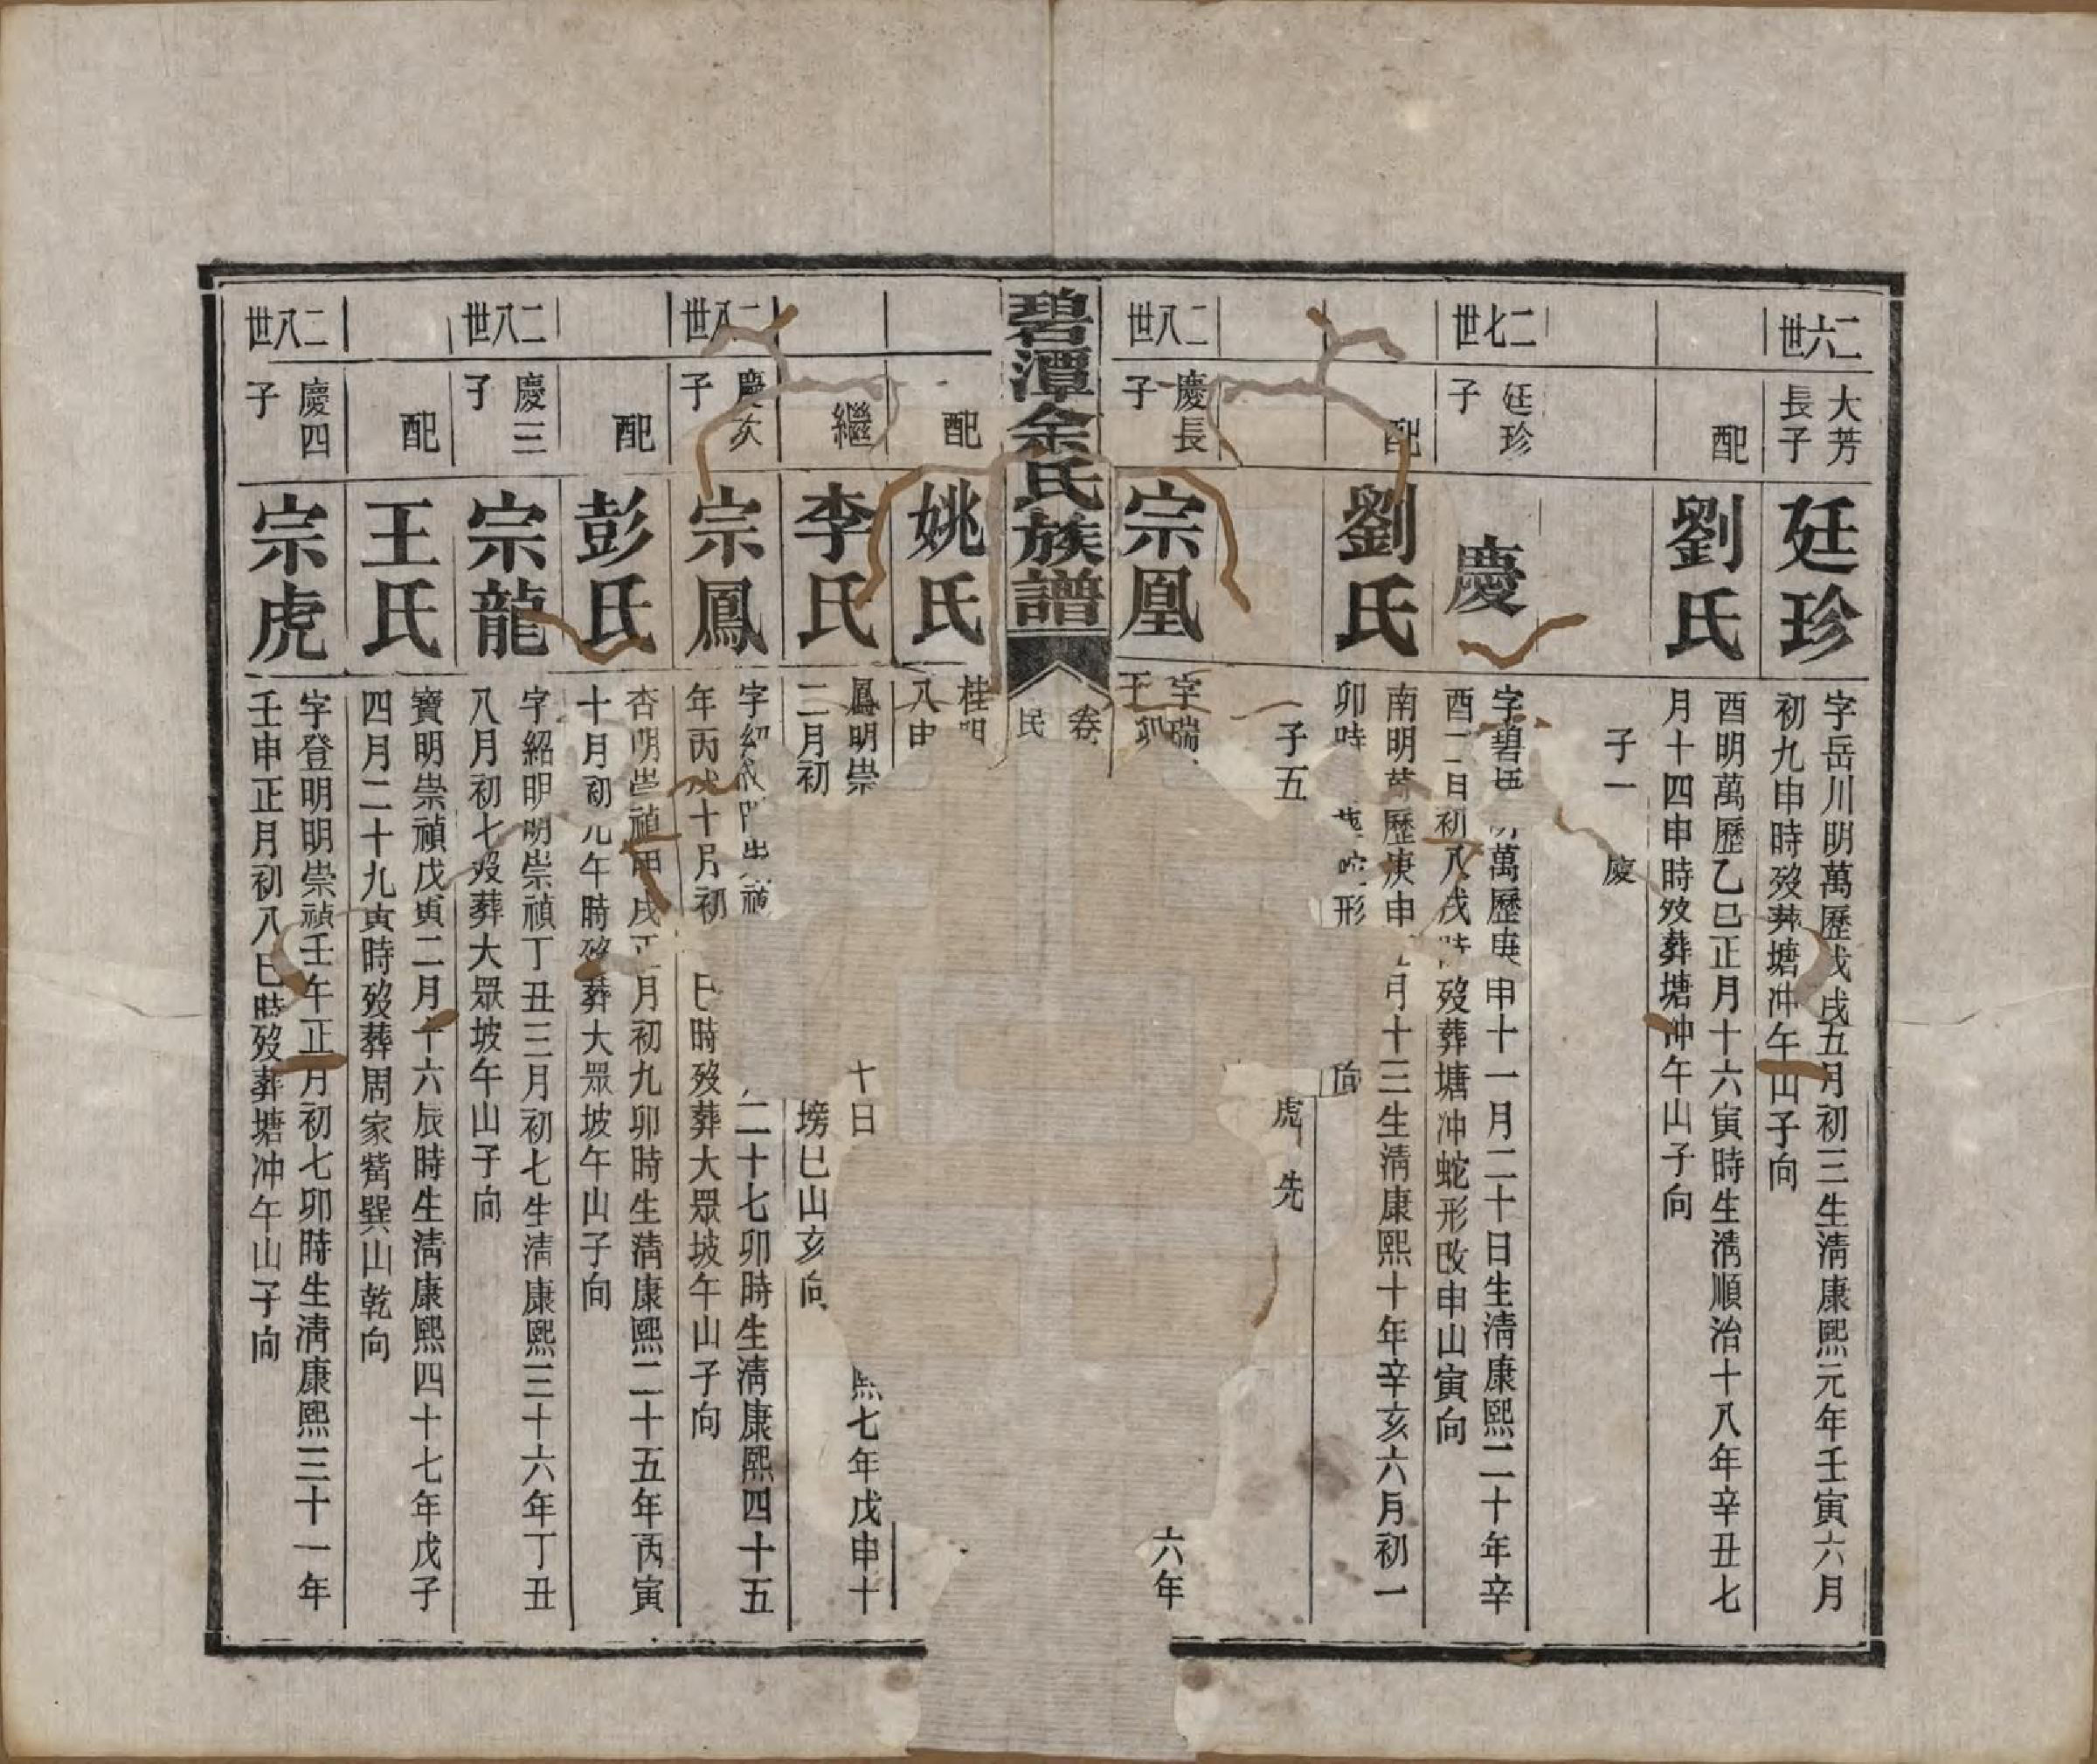 二六世
大芳
長子
廷珍
字岳川明萬歷戊戌五月初三生淸康熙元年壬寅六月
初九申時歿葬塘冲午山子向
配
劉氏
酉明萬歷乙巳正月十六寅時生淸順治十八年辛丑七
月十四申時歿葬塘冲午山子向
子一 慶
二七世
廷珍
子
慶
字碧 萬歷庚申十一月二十日生淸康熙二十年辛
酉二月初八戌時歿葬塘冲蛇形改申山寅向
配
劉氏
南明萬歷庚申 月十三生淸康熙十年辛亥六月初一
卯時 葬 蛇形 向
子五 虎 先
二八世
慶長
子
宗凰
字瑞 六年
卯
碧潭余氏族譜
卷
民
配
姚氏
桂明
八申
繼
李氏
鳳明崇 十日 熙七年戊申十
二月初 塝巳山亥向
二八世
慶次
子
宗鳳
字紹 明崇禎 二十七卯時生淸康熙四十五
年丙戌十月初 巳時歿葬大眾坡午山子向
配
彭氏
杏明崇禎甲戌正月初九卯時生淸康熙二十五年丙寅
十月初九午時歿葬大眾坡午山子向
二八世
慶三
子
宗龍
字紹明明崇禎丁丑三月初七生淸康熙三十六年丁丑
八月初七歿葬大眾坡午山子向
配
王氏
寶明崇禎戊寅二月十六辰時生淸康熙四十七年戊子
四月二十九寅時歿葬周家觜巽山乾向
二八世
慶四
子
宗虎
字登明明崇禎壬午正月初七卯時生淸康熙三十一年
壬申正月初八巳時歿葬塘冲午山子向